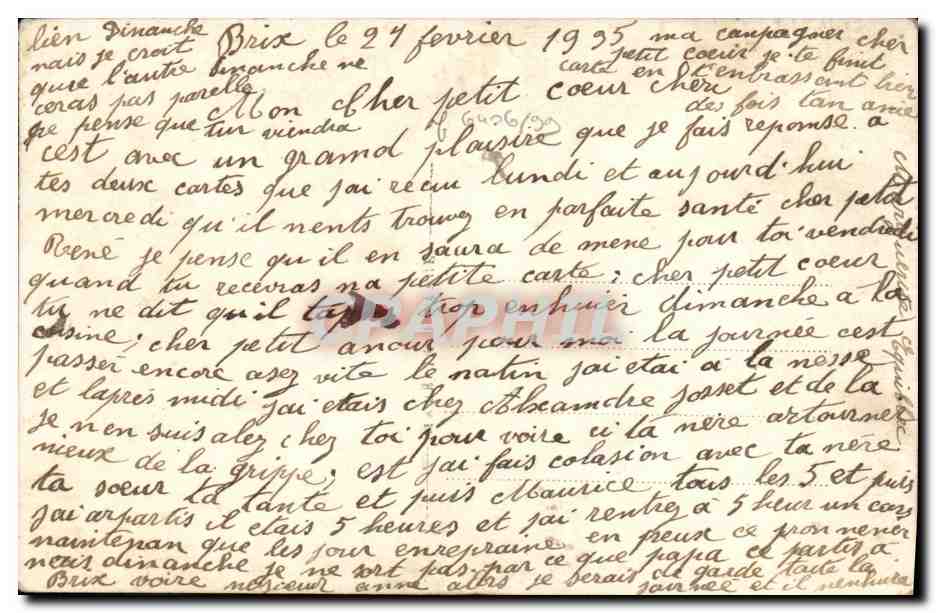 Brix le 27 fevrier 1935
Mon Cher petit coeur Chéri
c'est avec un grand plaisire que je fais reponse a
tes deux cartes que j'ai recu lundi et aujourd'hui
mercredi qu'il m'ents trouvez en parfaite santé cher petit
René je pense qu'il en saura de meme pour toi vendredi
quand tu recevras ma petite carte ; cher petit coeur
tu me dit qu'il ta trop enhuier dimanche a la
cusine ; cher petit amour pour moi la journée c'est
passér encore asez vite le matin j'ai étai à la messe
et l'aprés midi j'ai etais chez Alexamdre Josset et de la
je m'en suis alez chez toi pour voire ci ta mére artourner
mieux de la grippe ; est j'ai fais colasion avec ta mére
ta soeur ta tante et puis Maurice tous les 5 et puis
j'ai arpartis il etais 5 heures et j'ai rentrez à 5 heur un cars
maintenan que les jour enrepraine en peux ce promnener
mais dimanche je ne sort pas par ce que papa ce partis a
Brix voire mosieur anne alors je serais de garde toute la
journeé et il m'enhuira
bien Dimanche
mais je croit
que l'autre dimanche ne
ceras pas parelle
je pense que tur viendra
ma campagner cher
petit coeur je te finit
carte en t'enbrassant bien
des fois ton amie
Marguerite
6 6436/99
CPAPHIL